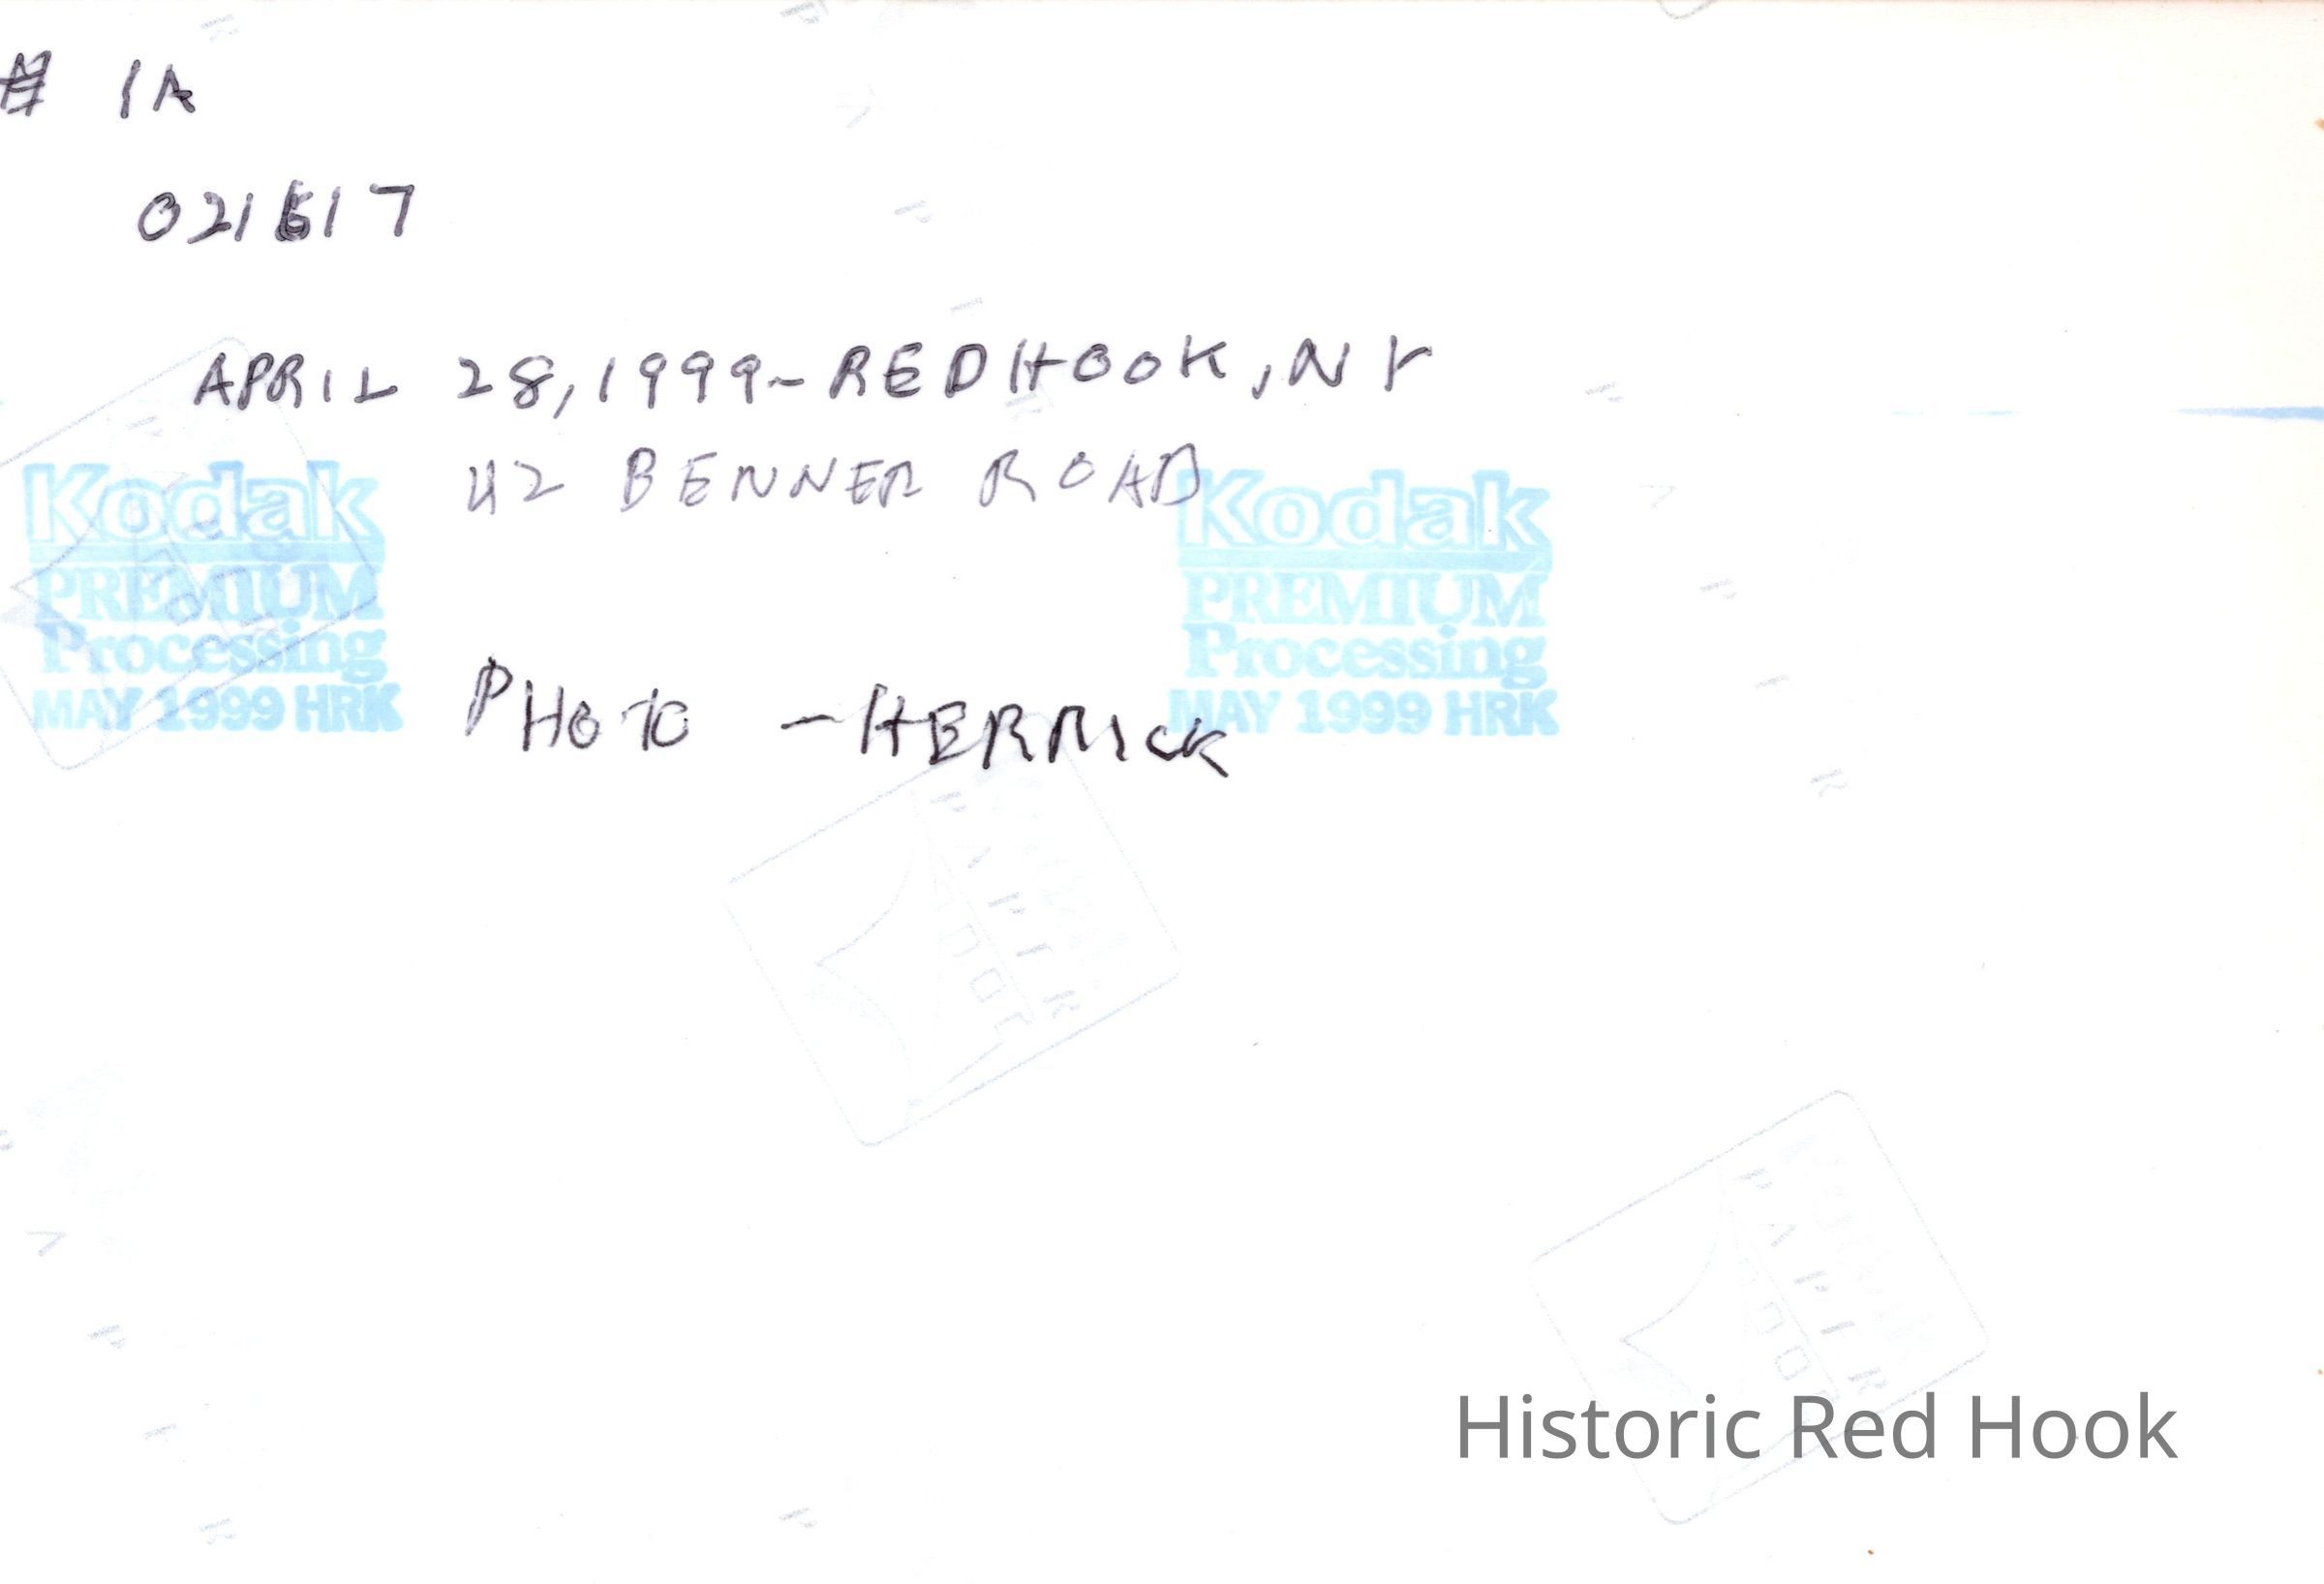 # 1A
021617
APRIL 28, 1999 - RED HOOK, NY
42 BENNER ROAD
Kodak
PREMIUM
Processing
MAY 1999 HRK
Kodak
PREMIUM
Processing
MAY 1999 HRK
PHOTO - HERRICK
Historic Red Hook